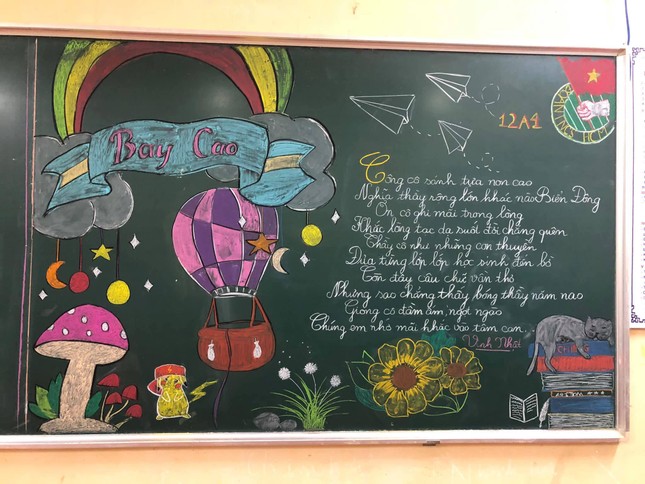 Bay Cao
12A1
Công cô sánh tựa non cao
Nghĩa thầy rộng lớn khác nào Biển Đông
Ơn cô ghi mãi trong lòng
Khắc lòng tạc dạ suốt đời chẳng quên
Thầy cô như những con thuyền
Đưa từng lớp lớp học sinh đến bờ
Còn đây câu chữ vần thơ
Nhưng sao chẳng thấy bóng thầy năm nao
Giọng cô đầm ấm, ngọt ngào
Chúng em nhớ mãi khắc vào tâm can.
Vĩnh Nhật